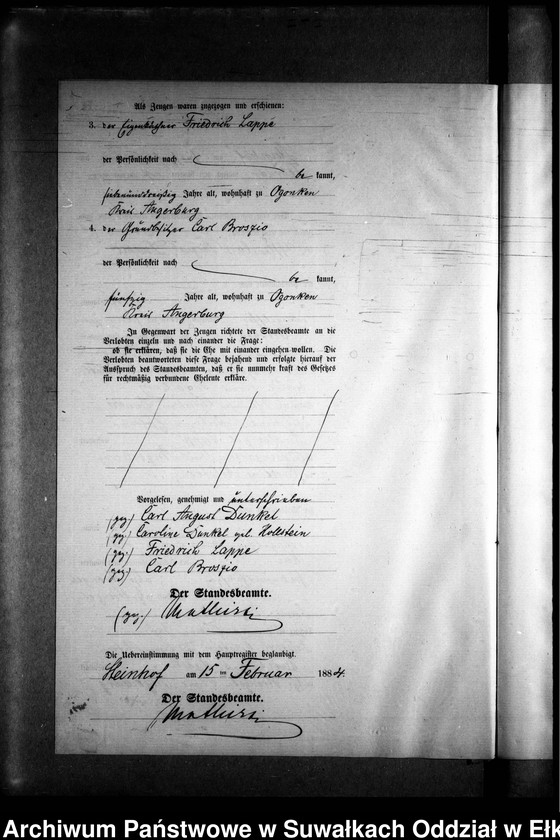 Als Zeugen waren zugezogen und erschienen:
3. der Eigenkäthner Friedrich Lappe
der Persönlichkeit nach
be kannt,
siebenunddreißig Jahre alt, wohnhaft zu Ogonken
Kreis Angerburg
4. der Grundbesitzer Carl Broszio
der Persönlichkeit nach
be kannt,
fünfzig Jahre alt, wohnhaft zu Ogonken
Kreis Angerburg
In Gegenwart der Zeugen richtete der Standesbeamte an die
Verlobten einzeln und nach einander die Frage:
ob sie erklären, daß sie die Ehe mit einander eingehen wollen. Die
Verlobten beantworteten diese Frage bejahend und erfolgte hierauf der
Ausspruch des Standesbeamten, daß er sie nunmehr kraft des Gesetzes
für rechtmäßig verbundene Eheleute erkläre.
Vorgelesen, genehmigt und unterschrieben
(gez) Carl August Dunkel
(gez) Caroline Dunkel geb. Hollstein
(gez) Friedrich Lappe
(gez) Carl Broszio
Der Standesbeamte.
(gez)
Die Uebereinstimmung mit dem Hauptregister beglaubigt.
Steinhof am 15 ten Februar 1884.
Der Standesbeamte.
Archiwum Państwowe w Suwałkach Oddział w Ełk